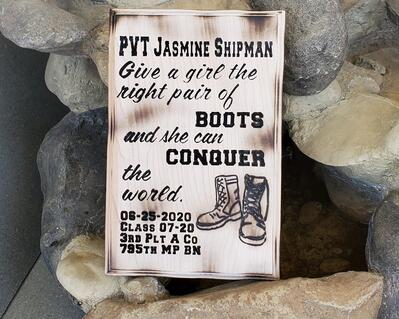 PVT Jasmine Shipman
Give a girl the
right pair of
BOOTS
and she can
CONQUER
the
world.
06-25-2020
Class 07-20
3rd Plt A Co
795th MP BN